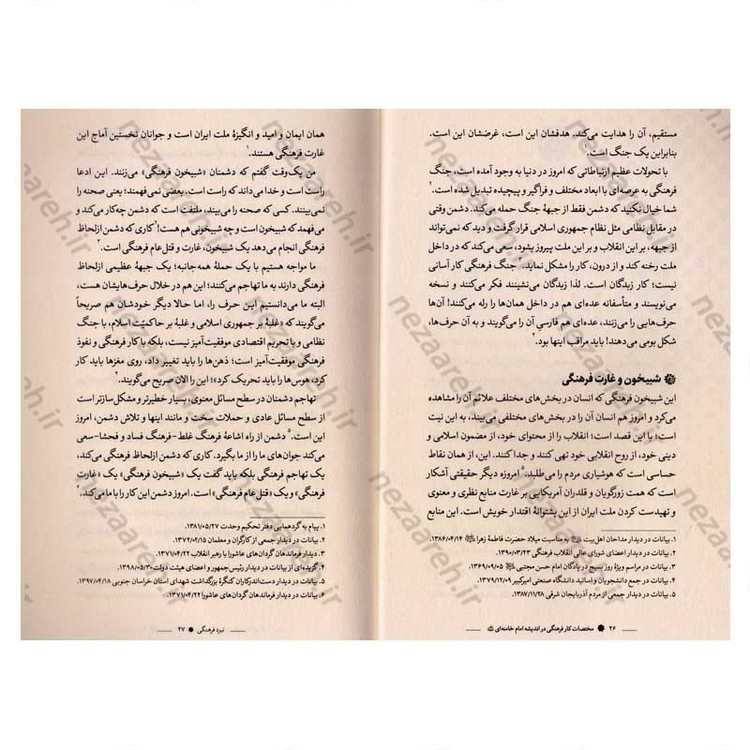 مستقیم، آن را هدایت می‌کند. هدفشان این است، غرضشان این است.
بنابراین یک جنگ است.
با تحولات عظیم ارتباطاتی که امروز در دنیا به وجود آمده است، جنگ
فرهنگی به عرصه‌ای با ابعاد مختلف و فراگیر و پیچیده تبدیل شده است.۲
شما خیال نکنید که دشمن فقط از جبههٔ جنگ حمله می‌کند. دشمن وقتی
در مقابل نظامی مثل نظام جمهوری اسلامی قرار گرفت و دید که نمی‌تواند
از جبهه، بر این انقلاب و بر این ملت پیروز بشود، سعی می‌کند که در داخل
ملت رخنه کند و از درون، کار را مشکل نماید. جنگ فرهنگی کار آسانی
نیست؛ کار زبدگان است. لذا زبدگان می‌نشینند فکر می‌کنند و نسخه
می‌نویسند و متأسفانه عده‌ای هم در داخل همان‌ها را رله می‌کنند! آن‌ها
حرف‌هایی را می‌زنند، عده‌ای هم فارسیِ آن را می‌گویند و به آن حرف‌ها،
شکل بومی می‌دهند! باید مراقب این‌ها بود.۴
شبیخون و غارت فرهنگی
این شبیخون فرهنگی که انسان در بخش‌های مختلف علائم آن را مشاهده
می‌کرد و امروز هم انسان آن را در بخش‌های مختلفی می‌بیند، به این نیت
است؛ با این قصد است؛ انقلاب را از محتوای خود، از مضمون اسلامی و
دینی خود، از روح انقلابی خود تهی کنند و جدا کنند. این، از همان نقاط
حساسی است که هوشیاری مردم را می‌طلبد.۵ امروزه دیگر حقیقتی آشکار
است که همت زورگویان و قلدران آمریکایی بر غارت منابع نظری و معنوی
و تهیدست کردن ملت ایران از این پشتوانهٔ اقتدار خویش است. این منابع
۱. بیانات در دیدار مداحان اهل‌بیت به مناسبت میلاد حضرت فاطمهٔ زهرا ۱۳۸۶/۰۴/۱۴.
۲. بیانات در دیدار اعضای شورای عالی انقلاب فرهنگی ۱۳۹۰/۰۳/۲۳.
۳. بیانات در مراسم ویژهٔ روز بسیج در پادگان امام حسن مجتبی ۱۳۶۹/۰۹/۰۵.
۴. بیانات در جمع دانشجویان و اساتید دانشگاه صنعتی امیرکبیر ۱۳۷۹/۱۲/۰۹.
۵. بیانات در دیدار جمعی از مردم آذربایجان شرقی ۱۳۸۷/۱۱/۲۸.
۲۶ مختصات کار فرهنگی در اندیشه امام خامنه‌ای
همان ایمان و امید و انگیزهٔ ملت ایران است و جوانان نخستین آماج این
غارت فرهنگی هستند.۱
من یک‌وقت گفتم که دشمنان «شبیخون فرهنگی» می‌زنند. این ادعا
راست است و خدا می‌داند که راست است. بعضی نمی‌فهمند؛ یعنی صحنه را
نمی‌بینند. کسی که صحنه را می‌بیند، ملتفت است که دشمن چه‌کار می‌کند و
می‌فهمد که شبیخون است و چه شبیخونی هم هست!۲ کاری که دشمن ازلحاظ
فرهنگی انجام می‌دهد یک شبیخون، غارت و قتل‌عام فرهنگی است.۳
ما مواجه هستیم با یک حملهٔ همه‌جانبه؛ یک جبههٔ عظیمی ازلحاظ
فرهنگی دارند به ما تهاجم می‌کنند؛ این هم در خلال حرف‌هایشان هست،
البته ما می‌دانستیم این حرف را، اما حالا دیگر خودشان هم صریحاً
می‌گویند که «غلبهٔ بر جمهوری اسلامی و غلبهٔ بر حاکمیّت اسلام، با جنگ
نظامی و با تحریم اقتصادی موفقیت‌آمیز نیست، بلکه با کار فرهنگی و نفوذ
فرهنگی موفقیت‌آمیز است؛ ذهن‌ها را باید تغییر داد، روی مغزها باید کار
کرد، هوس‌ها را باید تحریک کرد»؛ این را الان صریح می‌گویند.۴
تهاجم دشمنان در سطح مسائل معنوی، بسیار خطیرتر و مشکل سازتر است
از سطح مسائل عادی و حملات سخت و مانند اینها و تلاش دشمن، امروز
این است.۵ دشمن از راه اشاعهٔ فرهنگ غلط-فرهنگ فساد و فحشا-سعی
می‌کند جوان‌های ما را از ما بگیرد. کاری که دشمن ازلحاظ فرهنگی می‌کند،
یک تهاجم فرهنگی بلکه باید گفت یک «شبیخون فرهنگی» یک «غارت
فرهنگی» و یک «قتل‌عام فرهنگی» است. امروز دشمن این کار را با ما می‌کند.۶
۱. پیام به گردهمایی دفتر تحکیم وحدت ۱۳۸۱/۰۵/۲۷.
۲. بیانات در دیدار جمعی از کارگران و معلمان ۱۳۷۲/۰۲/۱۵.
۳. دیدار فرماندهان گردان‌های عاشورا با رهبر انقلاب ۱۳۷۱/۰۴/۲۲.
۴. گزیده‌ای از بیانات در دیدار رئیس‌جمهور و اعضای هیئت دولت ۱۳۹۸/۰۵/۳۰.
۵. بیانات در دیدار دست‌اندرکاران کنگرهٔ بزرگداشت شهدای استان خراسان جنوبی ۱۳۹۷/۰۴/۱۸.
۶. بیانات در دیدار فرماندهان گردان‌های عاشورا ۱۳۷۱/۰۴/۲۲.
نبرد فرهنگی ● ۲۷
nezaareh.ir